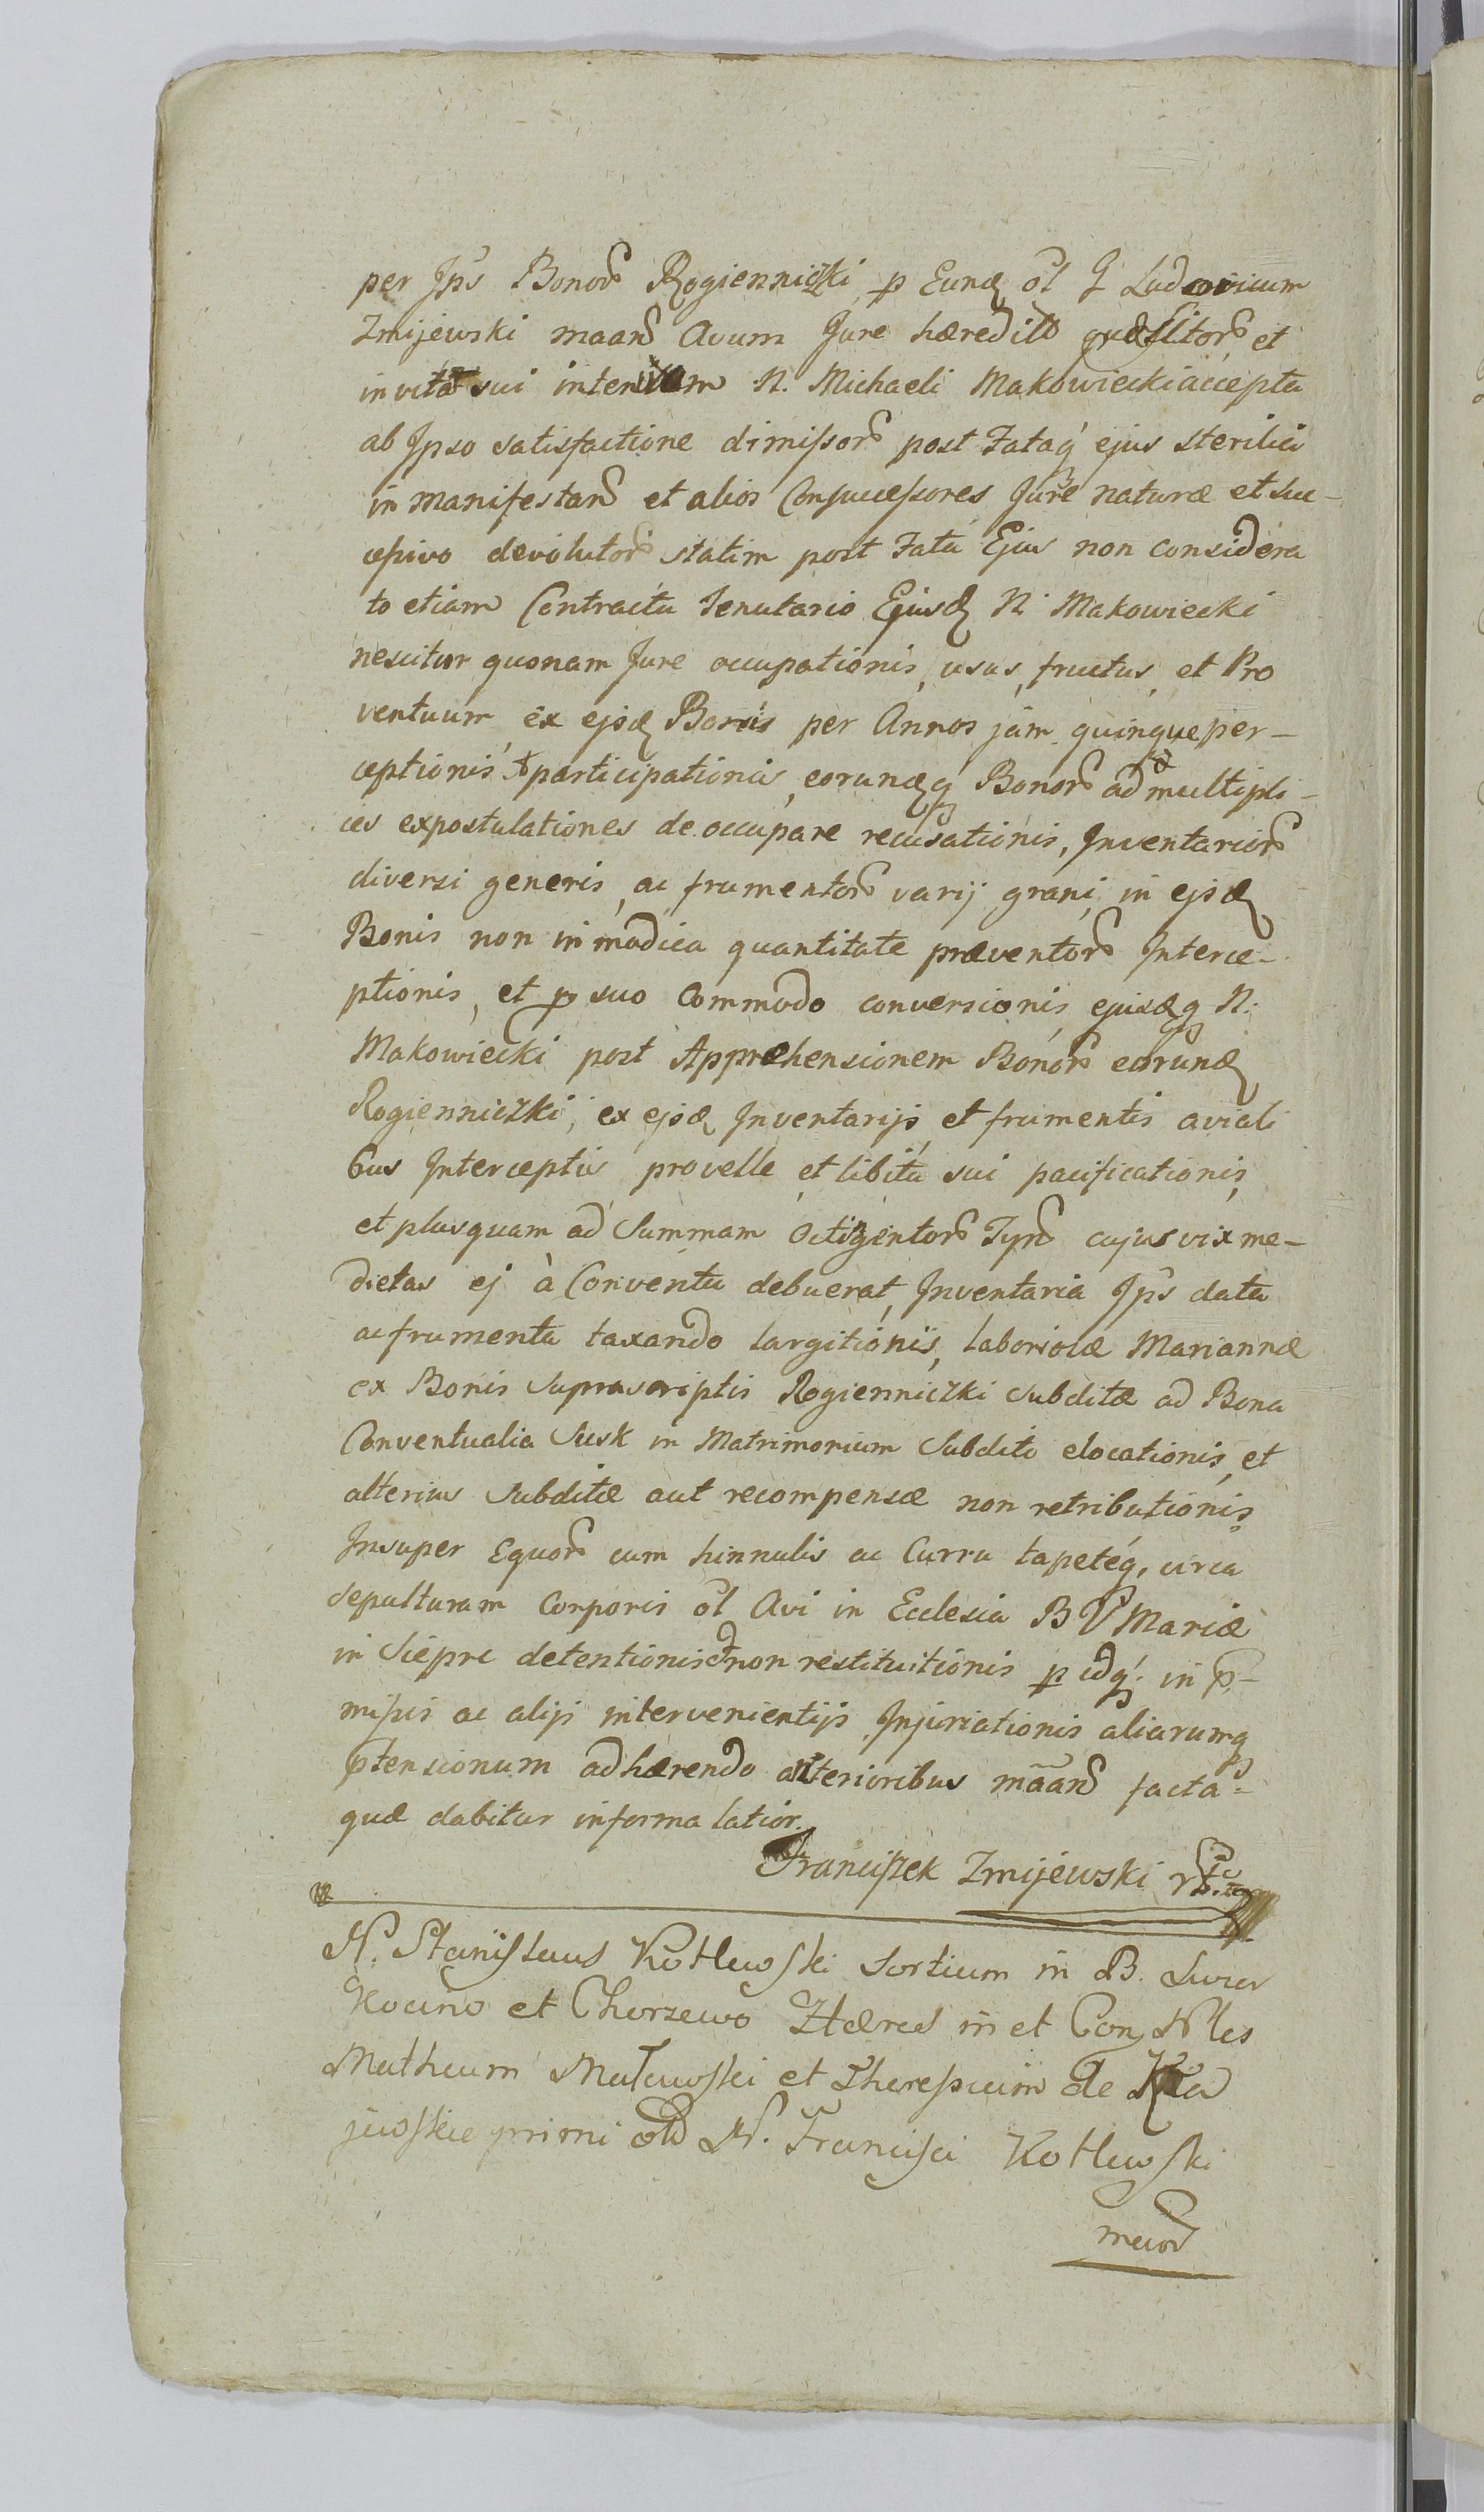 per Jps Bonor Rogienniczki, p Eund ol G Ludovicum
Zmijewski maan Avum Jure hæredit quæsitor et
in vita sui inten N. Michaeli Makowiecki accepta
ab Jpso satisfactione dimissor post Fataq ejus sterilia
in manifestan et alios Consuccessores Jure naturæ et suc-
cessivo devolutor statim post Fata Ejus non considera
to etiam Contractu Tenutario Ejusd N. Makowiecki
nescitur quonam Jure occupationis, usus, fructus, et Pro
ventuum ex ejsd Bonis per Annos jam quinque per-
ceptionis, et participationis, eorundq Bonor ad multipli-
ces expostulationes de occupare recusationis, Inventarior
diversi generis, ac frumentor varij grani in ejsd
Bonis non in modica quantitate præventor Interce-
ptionis, et p suo Commodo conversionis ejusdq N.
Makowiecki post Apprehensionem Bonor eorund
Rogienniczki, ex ejsd Inventarijs et frumentis aviali
bus Interceptis pro velle et libitu sui pacificationis,
et plusquam ad Summam octigentor Tyn cujus vix me-
dietas ej à Conventu debuerat, Inventaria Jps data
ac frumenta taxando largitionis, laboriosæ Mariannæ
ex Bonis Suprascriptis Rogienniczki Subditæ ad Bona
Conventualia Susk in Matrimonium Subdito elocationis, et
alterius Subditæ aut recompensæ non retributionis
Insuper Equor cum hinnulis ac Curru tapeteq, circa
Sepulturam Corporis ol Avi in Ecclesia B V Mariæ
in Siepre detentionis et non restitutionis p idq in p-
missis ac alijs intervenientijs Injuriationis aliarumq
ptensionum adhærendo anterioribus maan facta-
quæ dabitur in forma latior.
Franciszek Zmijewski
N. Stanislaus Kotlewski Sortium in B.
et Chorzewo Hæres in et Con Nles
Matheum et Theresiam de
primi ol N. Francisci Kotlewski